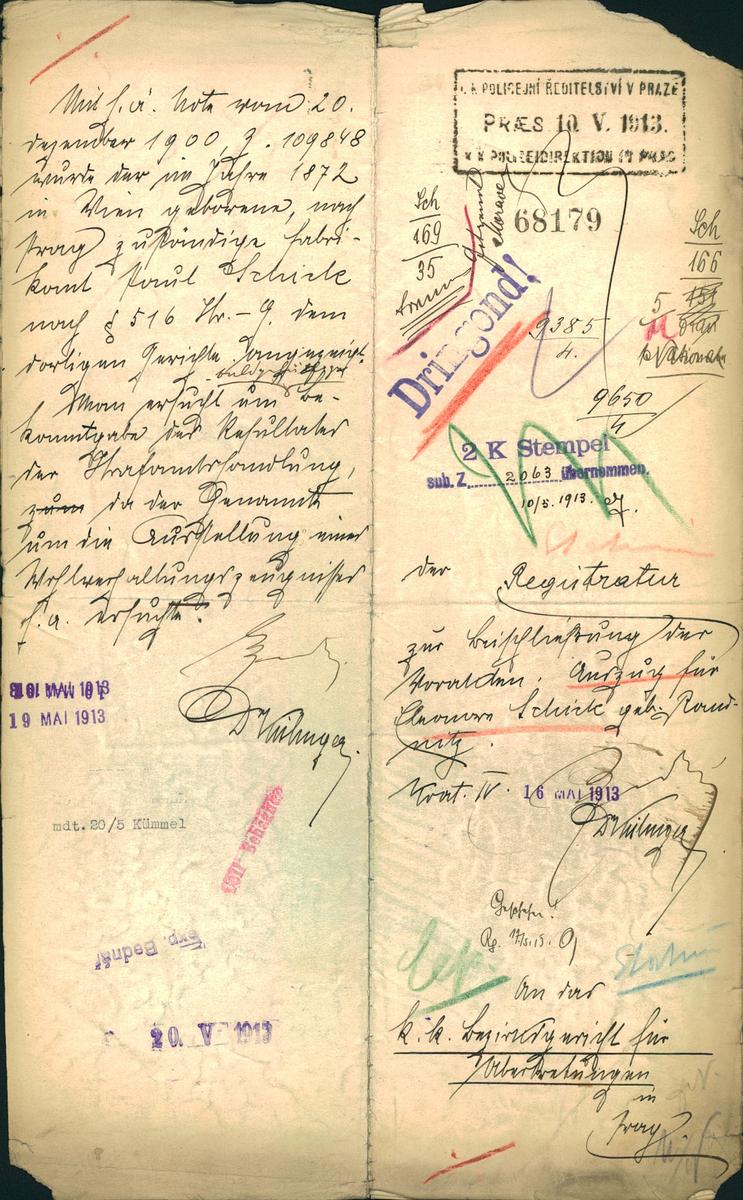 Mit h. ä. Note vom 20.
Dezember 1900, Z. 109848
wurde der im Jahre 1872
in Wien geborene, nach
Prag zuständige Fabri-
kant Paul Schick
nach § 516 Str.-G. dem
dortigen Gerichte angezeigt.
Man ersucht um Be-
kanntgabe des Resultates
der Strafamtshandlung,
zum da der Genannte
um die Ausstellung eines
Wohlverhaltungszeugnisses
h. a. ersuchte.
19 MAI 1913
mdt. 20/5 Kümmel
Exp. Bednář
20. V 1913
K. K. POLICEJNÍ ŘEDITELSTVÍ V PRAZE
PRÆS 10. V. 1913.
K. K. POLIZEIDIREKTION IN PRAG
68179
Sch
169
35
Sch
166
5
Dringend!
9385
4.
9650
4
2 K Stempel
sub. Z. 2063 übernommen.
10/5. 1913.
der Registratur
zur Beischließung der
Voralden. Auszug für
Eleonore Schick geb. Raud-
nitz.
16 MAI 1913
An das
k. k. Bezirksgericht für
Übertretungen
in
Prag